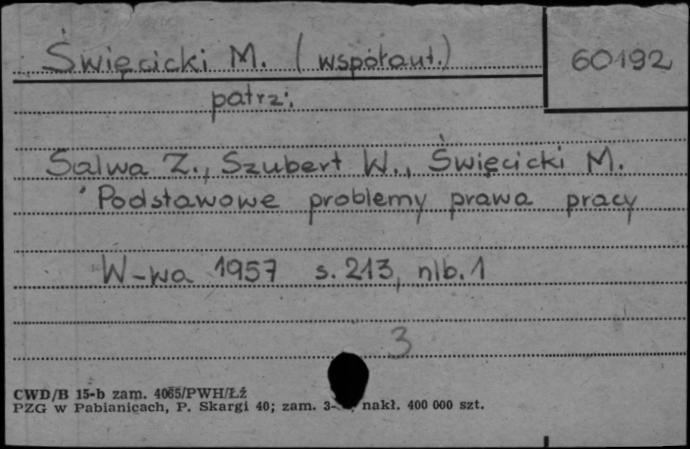 Święcicki M. (współaut.) 60192
patrz:
Salwa Z., Szubert W., Święcicki M.
Podstawowe problemy prawa pracy
W-wa 1957 s. 213, nlb. 1
3
CWD/B 15-b zam. 4065/PWH/Łź
PZG w Pabianicach, P. Skargi 40; zam. 3- nakł. 400 000 szt.